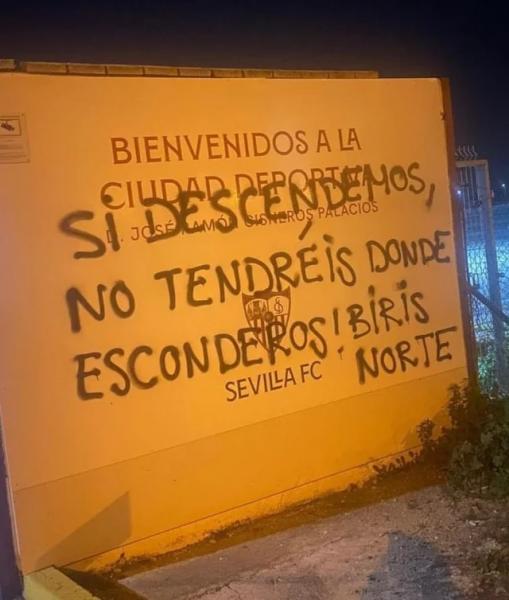 BIENVENIDOS A LA
CIUDAD DEPORTIVA
D. JOSÉ RAMÓN CISNEROS PALACIOS
SEVILLA FC
SI DESCENDEMOS,
NO TENDRÉIS DONDE
ESCONDEROS! BIRIS
NORTE